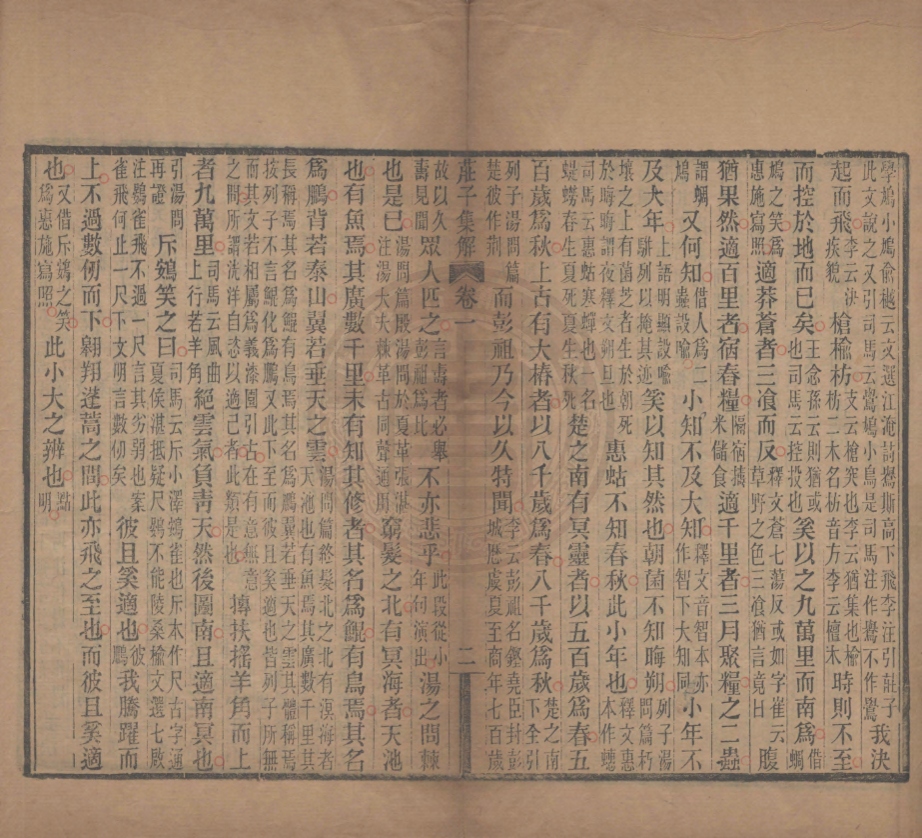 學鳩小鳩俞樾云文選江淹詩鷽斯高下飛李注引莊子此文說之又引司馬云鷽鳩小鳥是司馬注作鷽不作鸒我決
起而飛李云決疾貌槍榆枋支云槍突也李云猶集也榆枋二木名枋音方李云檀木時則不至
而控於地而已矣王念孫云則猶或也司馬云控投也奚以之九萬里而南爲借蜩
鳩之笑爲惠施寫照適莽蒼者三飡而反釋文蒼七蕩反或如字崔云草野之色三飡猶言竟日腹
猶果然適百里者宿舂糧隔宿擣米儲食適千里者三月聚糧之二蟲
謂蜩鳩又何知借人爲二蟲設喻小知不及大知釋文音智本亦作智下大知同小年不
及大年上語明顯設喻駢列以掩其迹奚以知其然也朝菌不知晦朔列子湯問篇朽
壤之上有菌芝者生於朝死於晦晦謂夜釋文朔旦也惠蛄不知春秋此小年也釋文惠本作蟪
司馬云惠蛄寒蟬也一名蝭蟧春生夏死夏生秋死楚之南有冥靈者以五百歲爲春五
百歲爲秋上古有大椿者以八千歲爲春八千歲爲秋楚之南下全引
列子湯問篇楚彼作荊而彭祖乃今以久特聞李云彭祖名鏗堯臣封彭城歷虞夏至商年七百歲
莊子集解 卷一 二
故以久壽見聞眾人匹之言壽者必舉彭祖爲比不亦悲乎此段從小年句演出湯之問棘
也是已湯問篇殷湯問於夏革張湛注湯大夫棘革古同聲通用窮髮之北有冥海者天池
也有魚焉其廣數千里未有知其修者其名爲鯤有鳥焉其名
爲鵬背若泰山翼若垂天之雲湯問篇終髮北之北有溟海者天池也有魚焉其廣數千里其
長稱焉其名爲鯤有鳥焉其名爲鵬翼若垂天之雲其體稱焉按列子不言鯤化爲鵬又此下至而彼且奚適也皆列子所無
而其文若相屬爲義漆園引古在有意無意之間所謂洸洋自恣以適己者此類是也摶扶搖羊角而上
者九萬里司馬云風曲上行若羊角絕雲氣負靑天然後圖南且適南冥也
引湯問再證斥鴳笑之曰司馬云斥小澤鴳雀也斥本作尺古字通夏侯湛抵疑尺鷃不能陵桑榆文選七啟
注鷃雀飛不過一尺言其劣弱也案雀飛何止一尺下文明言數仞矣彼且奚適也彼鵬我騰躍而
上不過數仞而下翱翔蓬蒿之間此亦飛之至也而彼且奚適
也又借斥鴳之笑爲惠施寫照此小大之辨也點明